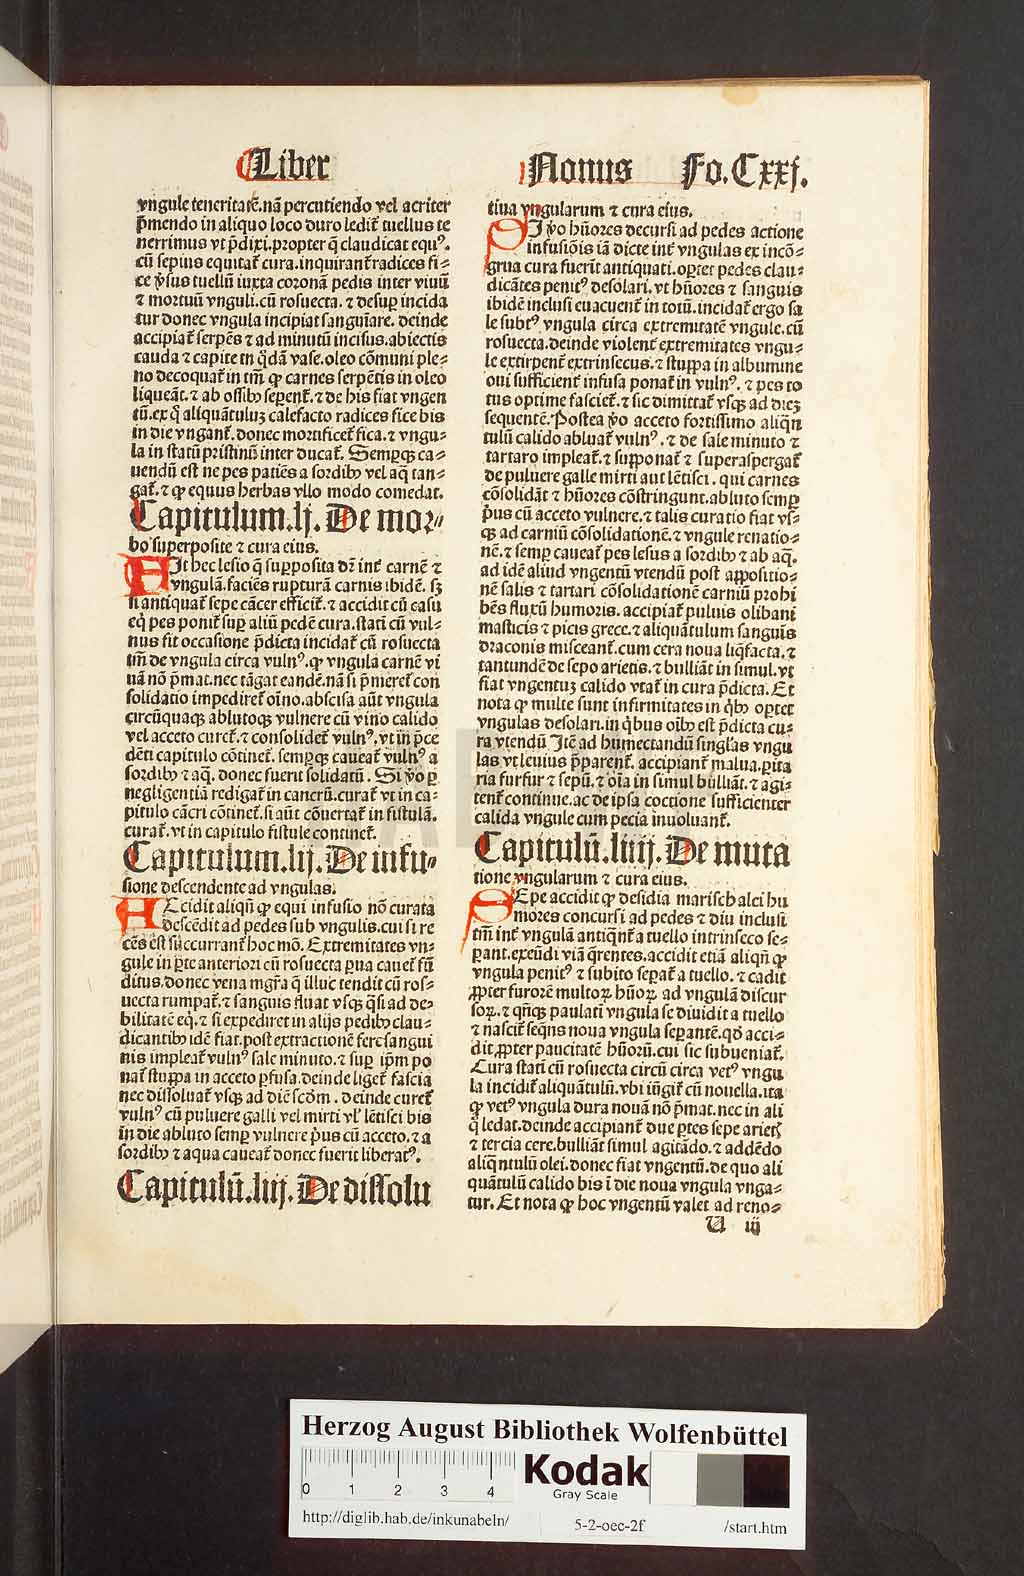 Liber
Nonus Fo.Cxxj.
vngule teneritatē.nā percutiendo vel acriter
p̄mendo in aliquo loco duro ledit᷑ tuellus te
nerrimus vt p̄dixi.propter q̄ claudicat equꝰ.
cū sepius equitat᷑ cura.inquirant᷑ radices fi⸗
ce ꝟsus tuellū iuxta coronā pedis inter viuū
⁊ mortuū vnguli.cū rosuecta.⁊ desuꝑ incida
tur donec vngula incipiat sanguīare.deinde
accipiat᷑ serpēs ⁊ ad minutū incisus.abiectis
cauda ⁊ capite in q̄dā vase.oleo cōmuni ple⸗
no decoquat᷑ in tm̄ ꝙ carnes serpētis in oleo
liqueāt.⁊ ab ossibꝰ seꝑent᷑.⁊ de his fiat vngen
tū.ex q̄ aliquātuluꝫ calefacto radices fice bis
in die vngant᷑.donec mortificet᷑ fica.⁊ vngu⸗
la in statū pristinū inter ducat᷑. Sempꝙ ca⸗
uendū est ne pes patiēs a sordibꝰ vel aq̄ tan⸗
gat᷑.⁊ ꝙ equus herbas vllo modo comedat.
Capitulum.lj. De mor⸗
bo superposite ⁊ cura eius.
FIt hec lesio q̄ supposita dr̄ int᷑ carnē ⁊
vngulā.faciēs rupturā carnis ibidē. sꝫ
si antiquat᷑ sepe cācer efficit᷑.⁊ accidit cū casu
eq̇ pes ponit᷑ suꝑ aliū pedē cura.stati cū vul⸗
nus fit occasione p̄dicta incidat᷑ cū rosuecta
tm̄ de vngula circa vulnꝰ.ꝙ vngula carnē vi
uā nō p̄mat.nec tāgat eandē.nā si p̄meret᷑ con
solidatio impediret᷑ oīno.abscisa aūt vngula
circūquaꝙ ablutoꝙ vulnere cū vino calido
vel acceto curet᷑.⁊ consolidet᷑ vulnꝰ.vt in p̄ce
dēti capitulo cōtinet᷑. sempꝙ caueat᷑ vulnꝰ a
sordibꝰ ⁊ aq̄. donec fuerit solidatū. Si ꝟo ꝑ
negligentiā redigat᷑ in cancrū.curat᷑ vt in ca⸗
pitulo cācri cōtinet᷑.si aūt cōuertat᷑ in fistulā.
curat᷑.vt in capitulo fistule continet᷑.
Capitulum.lij. De infu⸗
sione descendente ad vngulas.
ACcidit aliqn̄ ꝙ equi infusio nō curata
descēdit ad pedes sub vngulis.cui si re
cēs est succurrant᷑ hoc mō. Extremitates vn⸗
gule in ꝑte anteriori cū rosuecta ꝑua cauet᷑ fū
ditus.donec vena mgr̄a q̄ illuc tendit cū ros⸗
uecta rumpat᷑.⁊ sanguis fluat vsꝙ q̄si ad de⸗
bilitatē eq̇.⁊ si expediret in alijs pedibꝰ clau⸗
dicantibꝰ idē fiat.post extractionē fere sangui
nis impleat᷑ vulnꝰ sale minuto.⁊ suꝑ ip̄m po
nat᷑ stuppa in acceto ꝑfusa.deinde liget᷑ fascia
nec dissoluat᷑ vsꝙ ad diē scd̄m. deinde curet᷑
vulnꝰ cū puluere galli vel mirti vl᷑ lētisci bis
in die abluto semꝑ vulnere p̄us cū acceto.⁊ a
sordibꝰ ⁊ aqua caueat᷑ donec fuerit liberatꝰ.
Capitulū.liij. De dissolu
tiua vngularum ⁊ cura eius.
SI ꝟo hūores decursi ad pedes actione
infusiōis iā dicte int᷑ vngulas ex incō⸗
grua cura fuerīt antiquati.oꝑtet pedes clau⸗
dicātes penitꝰ desolari.vt hūores ⁊ sanguis
ibidē inclusi euacuent᷑ in totū.incidat᷑ ergo sa
le subtꝰ vngula circa extremitatē vngule.cū
rosuecta.deinde violent᷑ extremitates vngu⸗
le extirpent᷑ extrinsecus.⁊ stuppa in albumine
oui sufficient᷑ infusa ponat᷑ in vulnꝰ. ⁊ pes to
tus optime fasciet᷑.⁊ sic dimittat᷑ vsꝙ ad dieꝫ
sequentē. Postea ꝟo acceto fortissimo aliqn̄
tulū calido abluat᷑ vulnꝰ.⁊ de sale minuto ⁊
tartaro impleat᷑.⁊ supponat᷑ ⁊ superaspergat᷑
de puluere galle mirti aut lētisci. qui carnes
cōsolidāt ⁊ hūores cōstringunt.abluto semꝑ
p̄us cū acceto vulnere.⁊ talis curatio fiat vs⸗
ꝙ ad carniū cōsolidationē.⁊ vngule renatio⸗
nē.⁊ semꝑ caueat᷑ pes lesus a sordibꝰ ⁊ ab aq̄.
ad idē aliud vngentū vtendū post appositio⸗
nē salis ⁊ tartari cōsolidationē carniū prohi
bēs fluxū humoris. accipiat᷑ puluis olibani
masticis ⁊ picis grece.⁊ aliquātulum sanguis
draconis misceant᷑. cum cera noua liq̄facta.⁊
tantundē de sepo arietis.⁊ bulliāt in simul.vt
fiat vngentuꝫ calido vtat᷑ in cura p̄dicta. Et
nota ꝙ multe sunt infirmitates in q̇bꝰ oꝑtet
vngulas desolari.in q̇bus oībꝰ est p̄dicta cu⸗
ra vtendū Itē ad humectandū singl̄as vngu
las vt leuius p̄parent᷑. accipiant᷑ malua.ꝑita
ria furfur ⁊ sepū.⁊ oīa in simul bulliāt.⁊ agi⸗
tent᷑ continue.ac de ipsa coctione sufficienter
calida vngule cum pecia inuoluant᷑.
Capitulū.liiij. De muta
tione vngularum ⁊ cura eius.
SEpe accidit ꝙ desidia marischalci hu
mores concursi ad pedes ⁊ diu inclusi
tm̄ int᷑ vngulā antiqn̄t᷑ a tuello intrinseco se⸗
ꝑant.exeūdi viā q̄rentes.accidit etiā aliqn̄ ꝙ
vngula penitꝰ ⁊ subito seꝑat᷑ a tuello.⁊ cadit
ꝓpter furorē multoꝝ hūoꝝ ad vngulā discur
soꝝ.⁊ qn̄ꝙ paulati vngula se diuidit a tuello
⁊ nascit᷑ seq̄ns noua vngula seꝑantē.qd̄ acci⸗
dit ꝓpter paucitatē hūorū.cui sic subueniat᷑.
Cura stati cū rosuecta circū circa vetꝰ vngu
la incidit᷑ aliquātulū.vbi iūgit᷑ cū nouella.ita
ꝙ vetꝰ vngula dura nouā nō p̄mat.nec in ali
q̄ ledat.deinde accipiant᷑ due ꝑtes sepe arietꝭ
⁊ tercia cere.bulliāt simul agitādo.⁊ addēdo
aliqn̄tulū olei.donec fiat vngentū.de quo ali
quātulū calido bis ī die noua vngula vnga⸗
tur. Et nota ꝙ hoc vngentū valet ad reno⸗
U iij
Herzog August Bibliothek Wolfenbüttel
0 1 2 3 4
Kodak
Gray Scale
http://diglib.hab.de/inkunabeln/
5-2-oec-2f
/start.htm